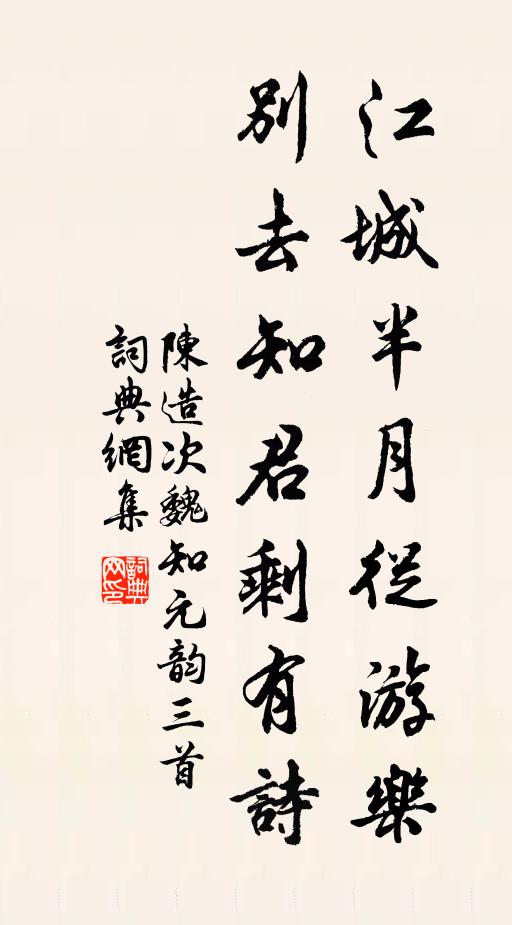 江城半月從游樂
別去知君剩有詩
陳造次魏知元韵三首
詞典網集
詞典网印